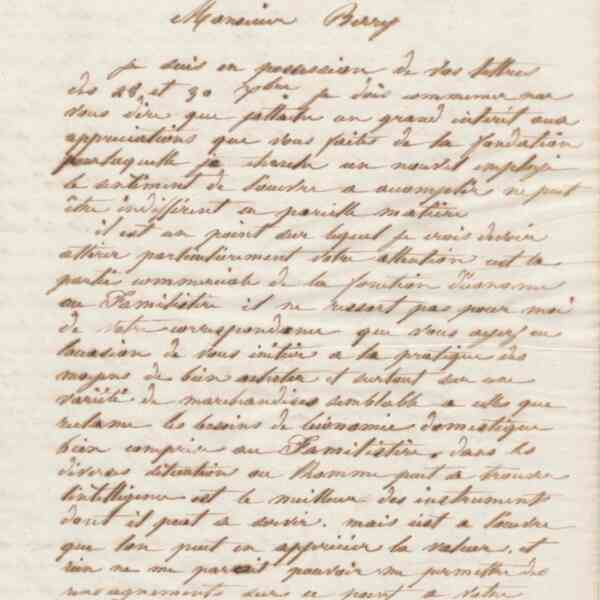 Monsieur Berry
je suis en possession de vos lettres
des 28 et 30 7bre je dois commencer par
vous dire que j'attache un grand intérêt aux
appreciations que vous faites de la fondation
pour laquelle je cherche un nouvel employé
le sentiment de l'œuvre a accomplir ne peut
être indifférent en pareille matière
il est un point sur lequel je crois devoir
attirer particulièrement votre attention c'est la
partie commerciale de la fonction d'économe
au Familistère il ne ressort pas pour moi
de votre correspondance que vous ayez eu
l'occasion de vous initier a la pratique des
moyens de bien acheter et surtout sur une
variété de marchandises semblable a celle que
reclame les besoins de l'économie domestique
bien comprise au Familistère, dans les
diverses situation ou l'homme peut se trouver
l'intelligence est le meilleur des instruments
dont il peut se servir. mais c'est a l'œuvre
que l'on peut en apprécier la valeur. et
rien ne me parait pouvoir me permettre des
renseignements sur ce point a votre